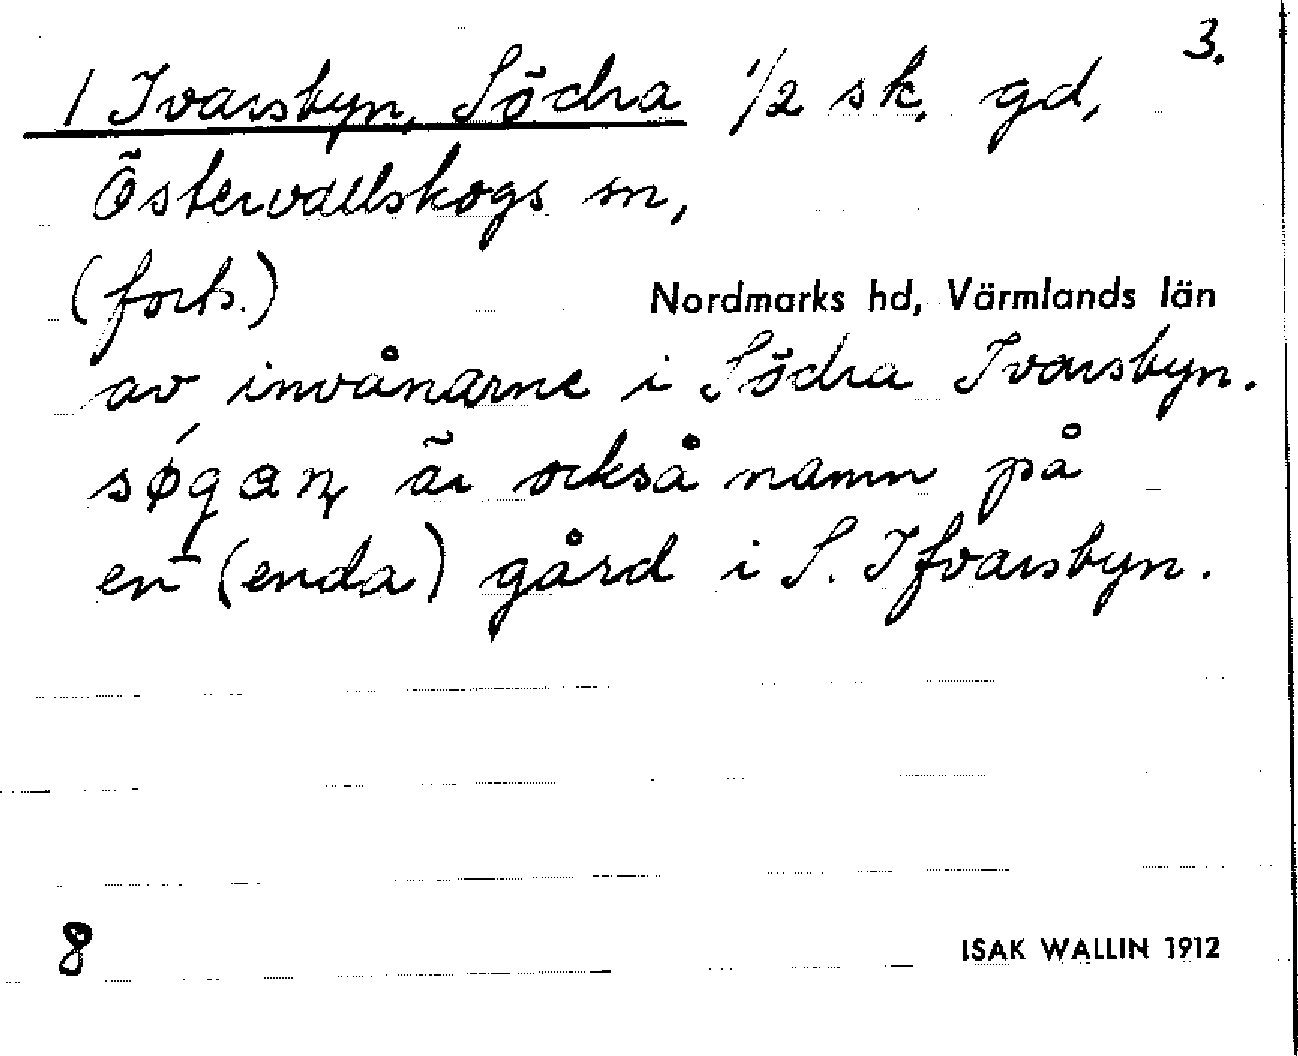 3.
1 Ivarsbyn, Södra 1/2 sk. gd,
Östervallskogs sn,
(forts.)
Nordmarks hd, Värmlands län
av invånarne i Södra Ivarsbyn.
är också namn på
en (enda) gård i S. Ifvarsbyn.
8
ISAK WALLIN 1912